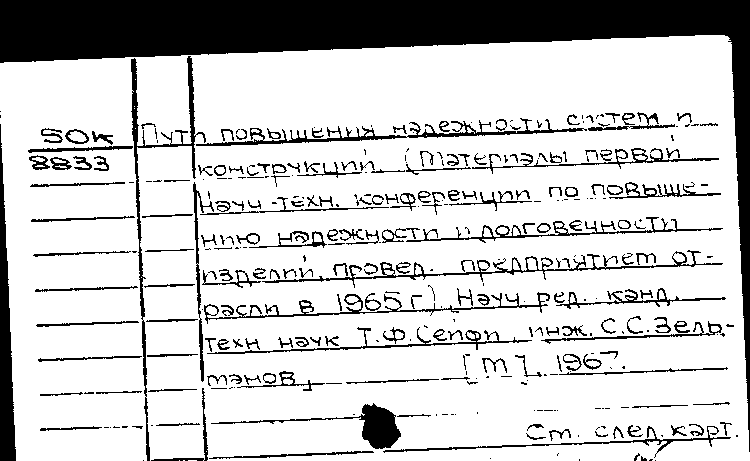 50к Пути повышения надежности систем и
8833 конструкций. (Материалы первой
Науч.-техн. конференции по повыше-
нию надежности и долговечности
изделий, провед. предприятием от-
расли в 1965 г.). Науч. ред. канд.
техн наук Т.Ф.Сейфи, инж. С.С.Зель-
манов,
[М], 1967.
См. след. карт.